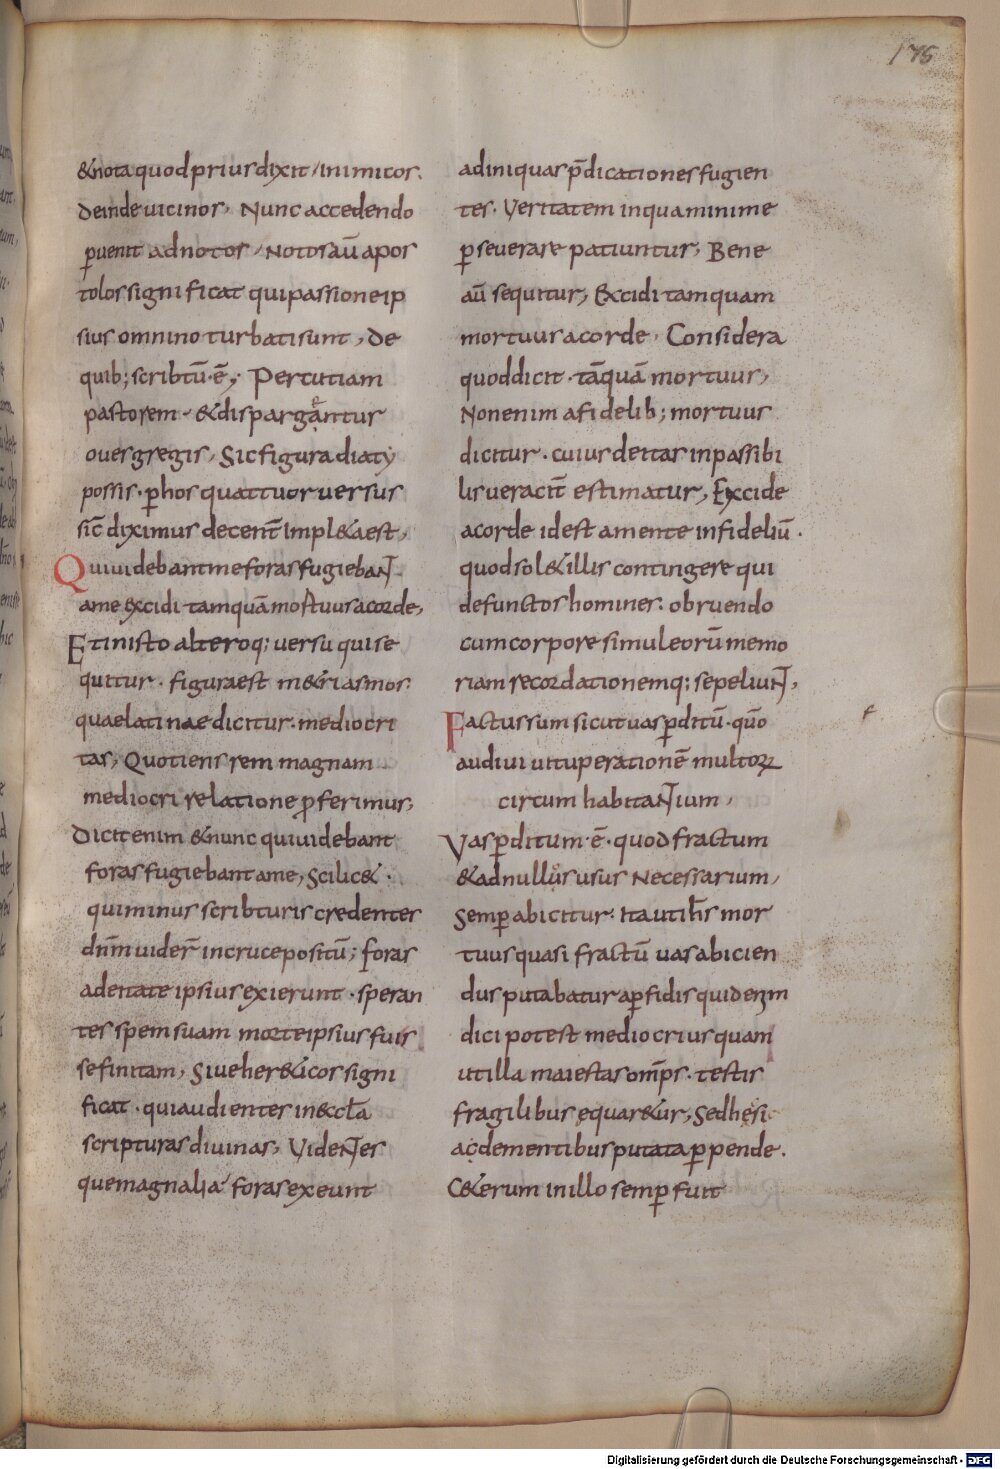 175
&nota quod prius dixit / inimicos.
Deinde uicinos. Nunc accedendo
puenit ad notos / Notos aū apos
tolos significat qui passione ip
sius omnino turbati sunt, de
quib; scribtū. ē; Percutiam
pastorem. & dispargantur
oues gregis, Sic figura diaty
possis. p hos quattuor uersus
sic diximus decent impl&a est,
Qui uidebant me foras fugiebant
a me excidi tamquā mortuus a corde,
Et in isto alteroq; uersu qui se
quitur. figura est m&riasmos
quae latinae dicitur. mediocri
tas, Quotiens rem magnam
mediocri relatione pferimus,
Dicit enim & nunc qui uidebant
foras fugiebant a me, Scilic&.
qui minus scribturis credentes
dnm uider in cruce positū; foras
a deitate ipsius exierunt. speran
tes spem suam morte ipsius fuis
se finitam, Siue her&icos signi
ficat. qui audientes in eccla
scripturas diuinas, Videntes
que magnalia foras exeunt
ad iniquas pdicationes fugien
tes. Veritatem in qua minime
pseuerare patiuntur, Bene
aū sequitur, Excidi tamquam
mortuus a corde. Considera
quod dicit. tāquā mortuus,
Non enim a fidelib; mortuus
dicitur. cuius deitas inpassibi
lis ueracit estimatur, Excide
a corde id est a mente infideliū.
quod sol& illis contingere qui
defunctos homines. obruendo
cum corpore simul eorū memo
riam recordationemq; sepeliunt,
Factus sum sicut uas pditū. quō f
audiui uituperationē multor
circum habitantium,
Vas pditum. ē. quod fractum
& ad nullus usus necessarium,
Semp abicitur. Ita ut ihs mor
tuus quasi fractū uas abicien
dus putabatur a pfidis quid enim
dici potest mediocrius quam
ut illa maiestas omps. testis
fragilibus equar&ur, Sed hesi
ac dementibus putata ppende.
C&erum in illo semp fuit
Digitalisierung gefördert durch die Deutsche Forschungsgemeinschaft - DFG